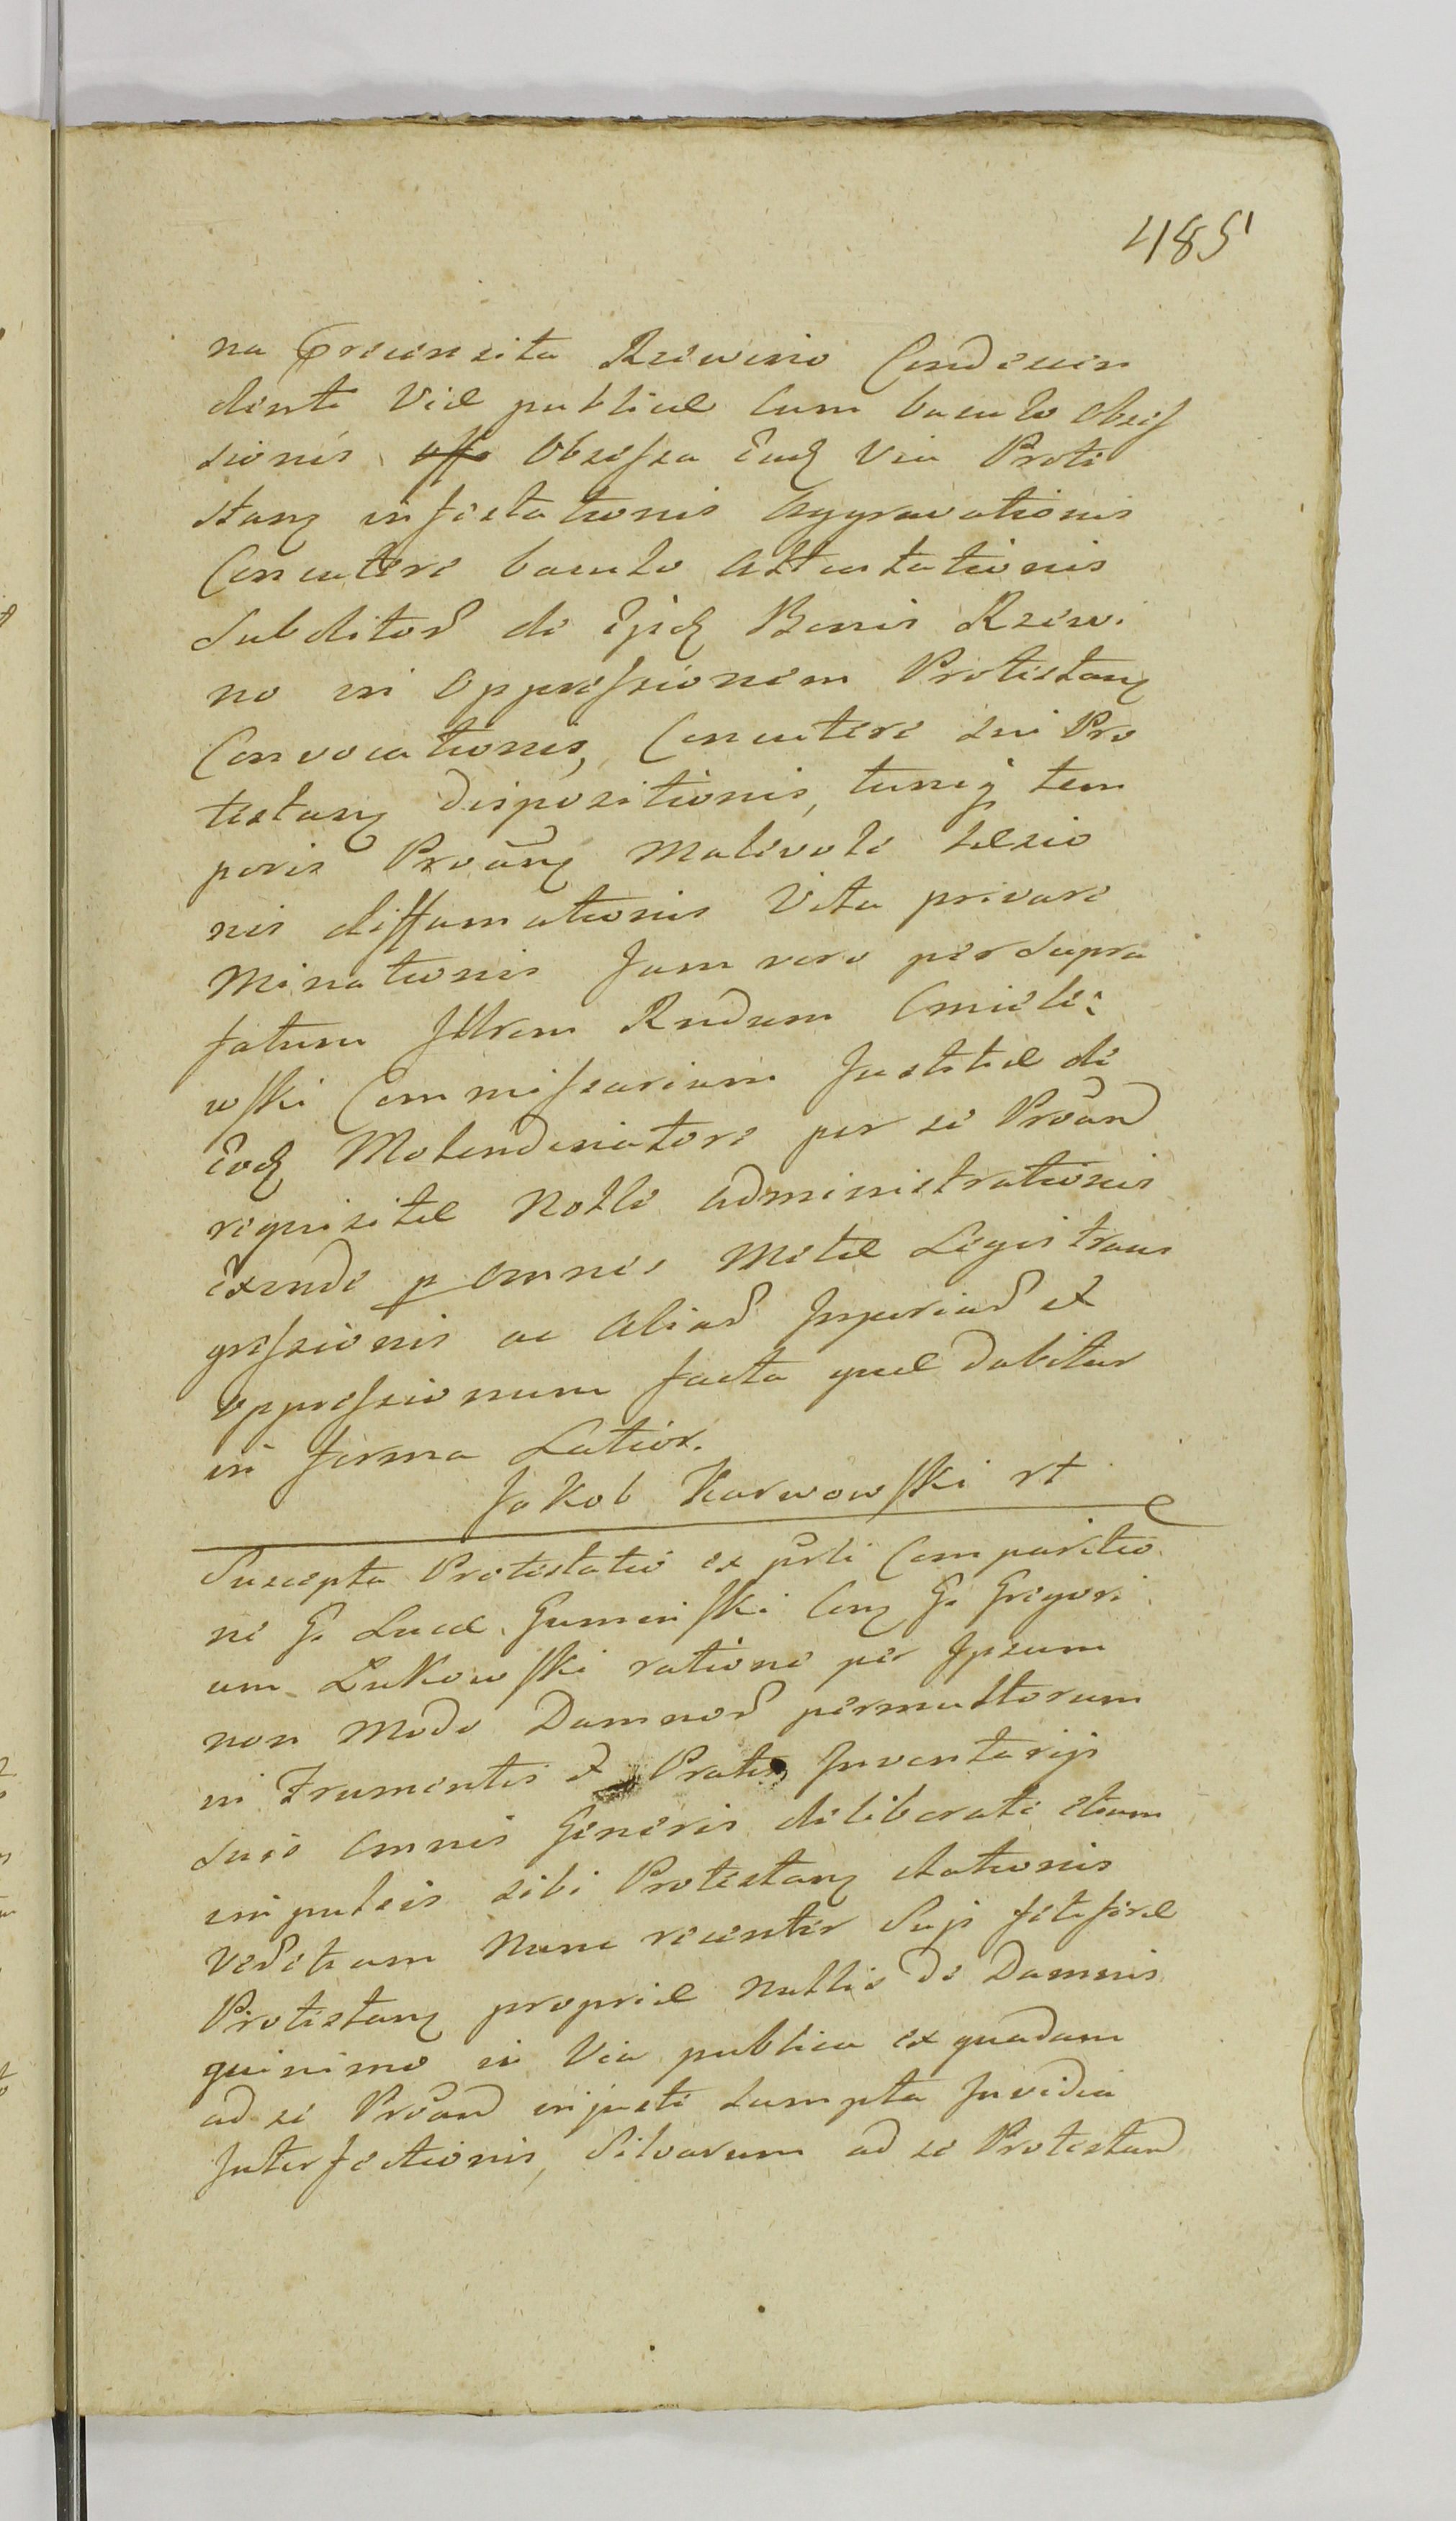 485
na Precensita Rzewino Condescen
dente Viæ publicæ cum baculo obses
sionis Obsessa Eadq Via Prote
stanq infestationis Aggravationis
Concutere baculo Attentationis
Subditor de Ejsdq Bonis Rzewi
no in Oppressionem Protestanq
Convocationis, Concutere sui Pro
testanq dispositionis, tuniq tem
poris Prõanq Malevole Læsio
nis diffamationis Vita privare
Minationis Jam vero per supra
fatum Rndum Cmiele:
wski Commissarium Justitiæ de
Eodq Molendinatore per se Prõand
requisitæ Nolle administrationis
Exinde p omnes Metæ Legis trans
gressionis ac aliar Injuriar et
oppressionum facta quæ dabitur
in forma Latior.
Jakob Karwowski rt
Suscepta Protestatio ex psti Comparitio
ne G. Lucæ Guminski Conq G. Gregori
um Lukowski ratione per Ipsum
non modo Damnor permultorum
in Frumentis et Pratis Inventarijs
suis omnis Generis deliberate etiam
impulsis sibi Protestanq dationis
Nunc recenter
Protestanq propriæ nullis de Damnis
quinimo in Via publica ex quadam
ad se Prõand injuste sumpta Invidia
Interfectionis, Silvarum ad se Protestand